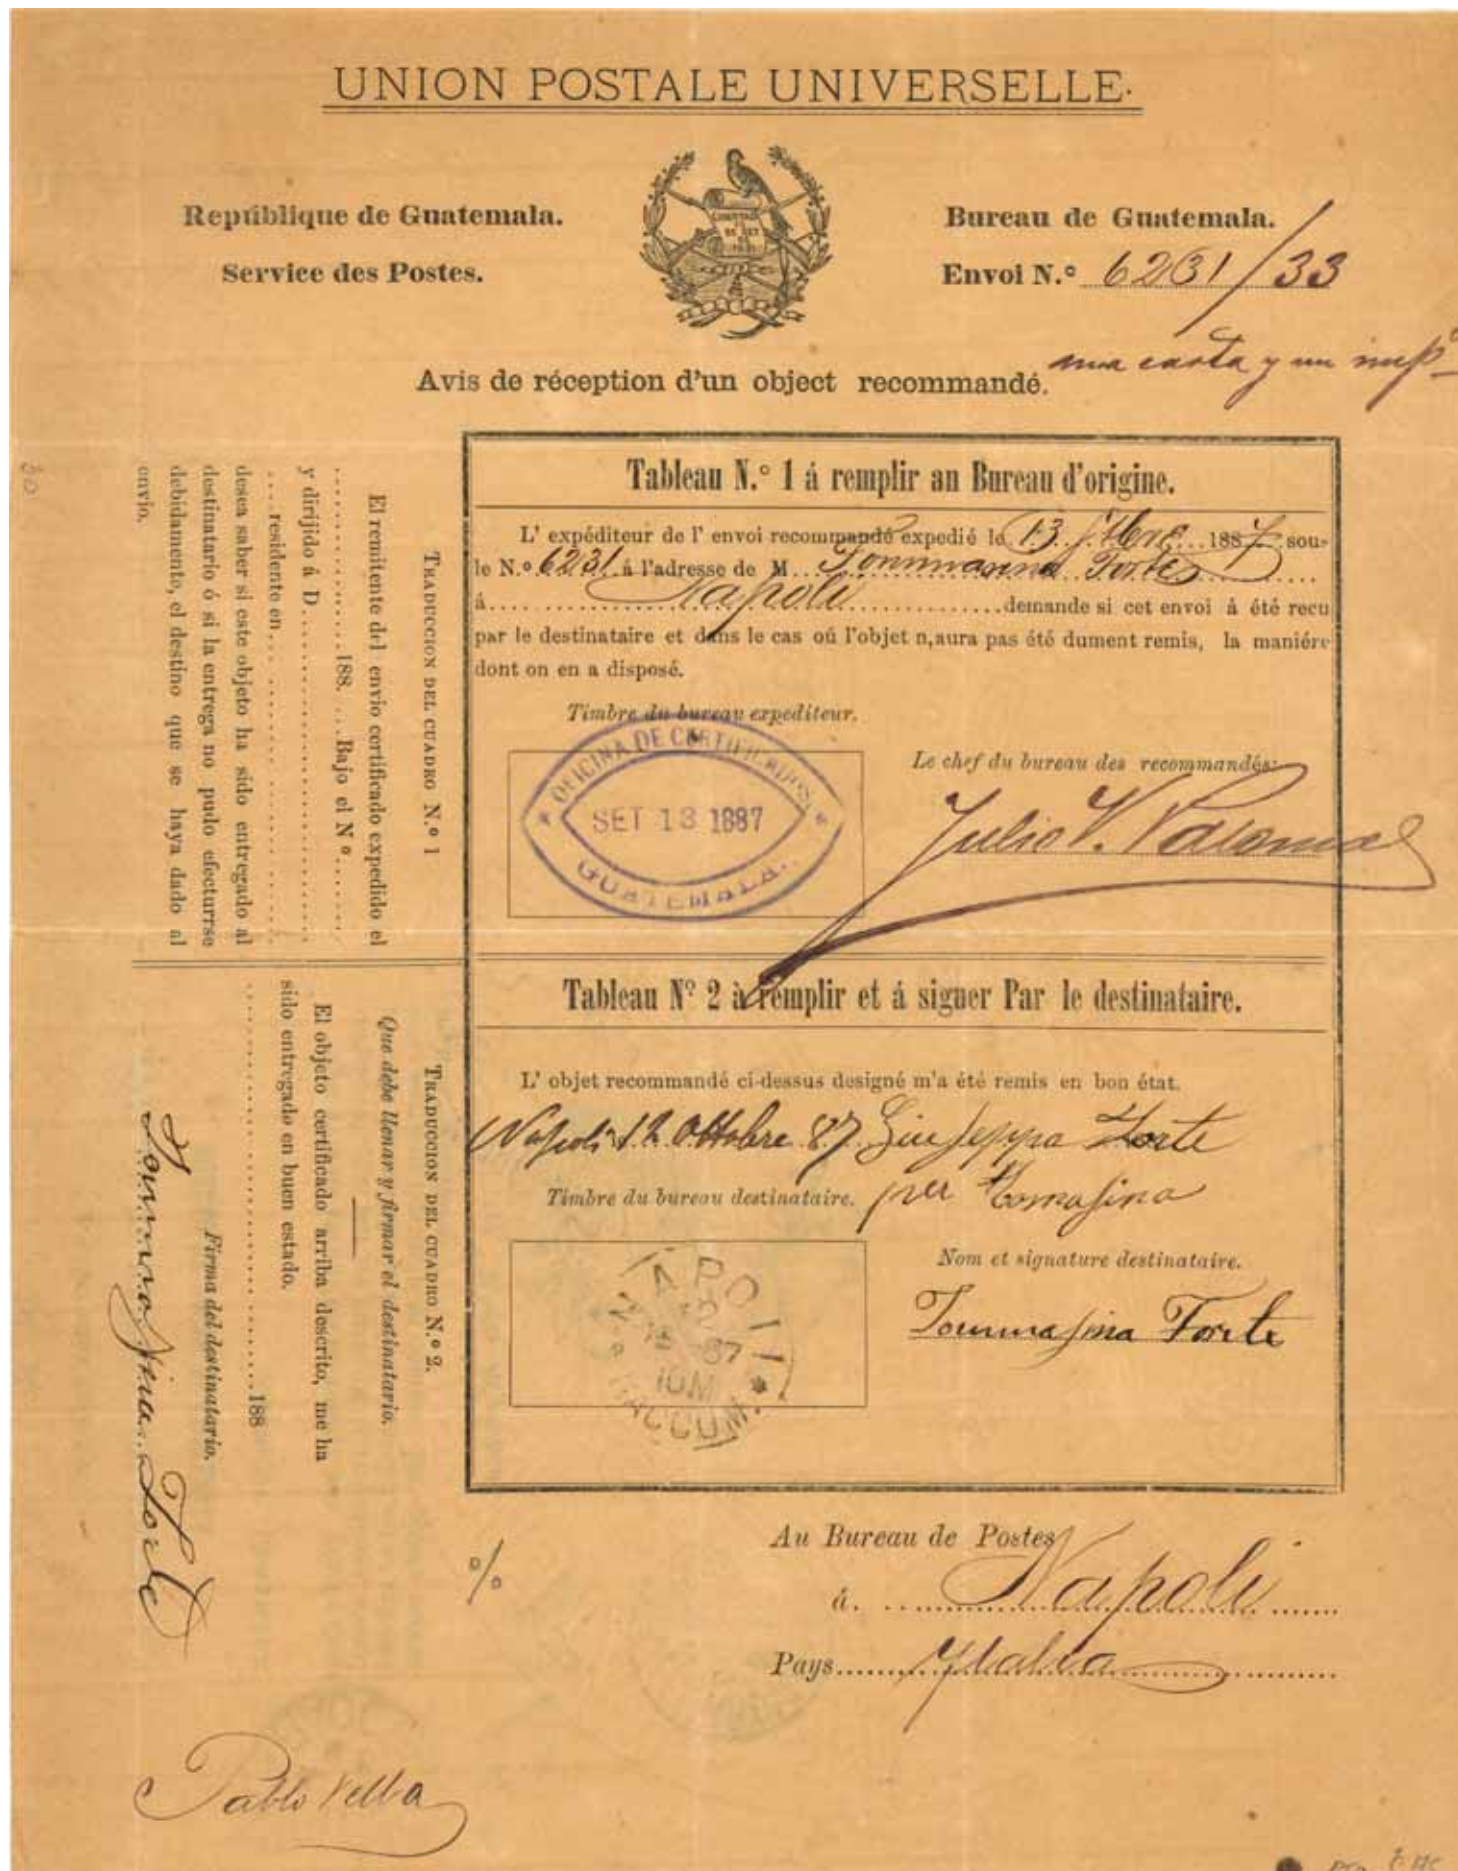 UNION POSTALE UNIVERSELLE.
République de Guatemala.
Service des Postes.
Bureau de Guatemala.
Envoi N.º 6231/33
una carta y un imp
Avis de réception d'un object recommandé.
Tableau N.º 1 á remplir an Bureau d'origine.
L' expéditeur de l' envoi recommandé expedié le 13 7tbre 1887 sou-
le N.º 6231 á l'adresse de M Tommasina Forte
á Napoli demande si cet envoi á été recu
par le destinataire et dans le cas oú l'objet n,aura pas été dument remis, la maniére
dont on en a disposé.
Timbre du bureau expediteur.
OFICINA DE CERTIFICADOS
SET 13 1887
GUATEMALA.
Le chef du bureau des recommandés:
Julio V. Palomo
Tableau Nº 2 à remplir et á signer Par le destinataire.
L' objet recommandé ci-dessus designé m'a été remis en bon état.
Napoli 12 Ottobre 87 Giuseppa Forte
per Tomasina
Timbre du bureau destinataire.
NAPOLI
12
87
10M
RACCOM.
Nom et signature destinataire.
Tommasina Forte
Au Bureau de Postes
á. Napoli
Pays Ytalia
TRADUCCION DEL CUADRO N.º 1
El remitente del envio certificado expedido el
188. Bajo el Nº
y dirijido á D.
residente en
desea saber si este objeto ha sido entregado al
destinatario ó si la entrega no pudo efecturrse
debidamento, el destino que se haya dado al
envio.
TRADUCCION DEL CUADRO N.º 2.
Que debe llenar y firmar el destinatario.
El objeto certificado arriba descrito, me ha
sido entregado en buen estado.
188
Firma del destinatario.
Tommasina Forte
%
Pablo Vella
30